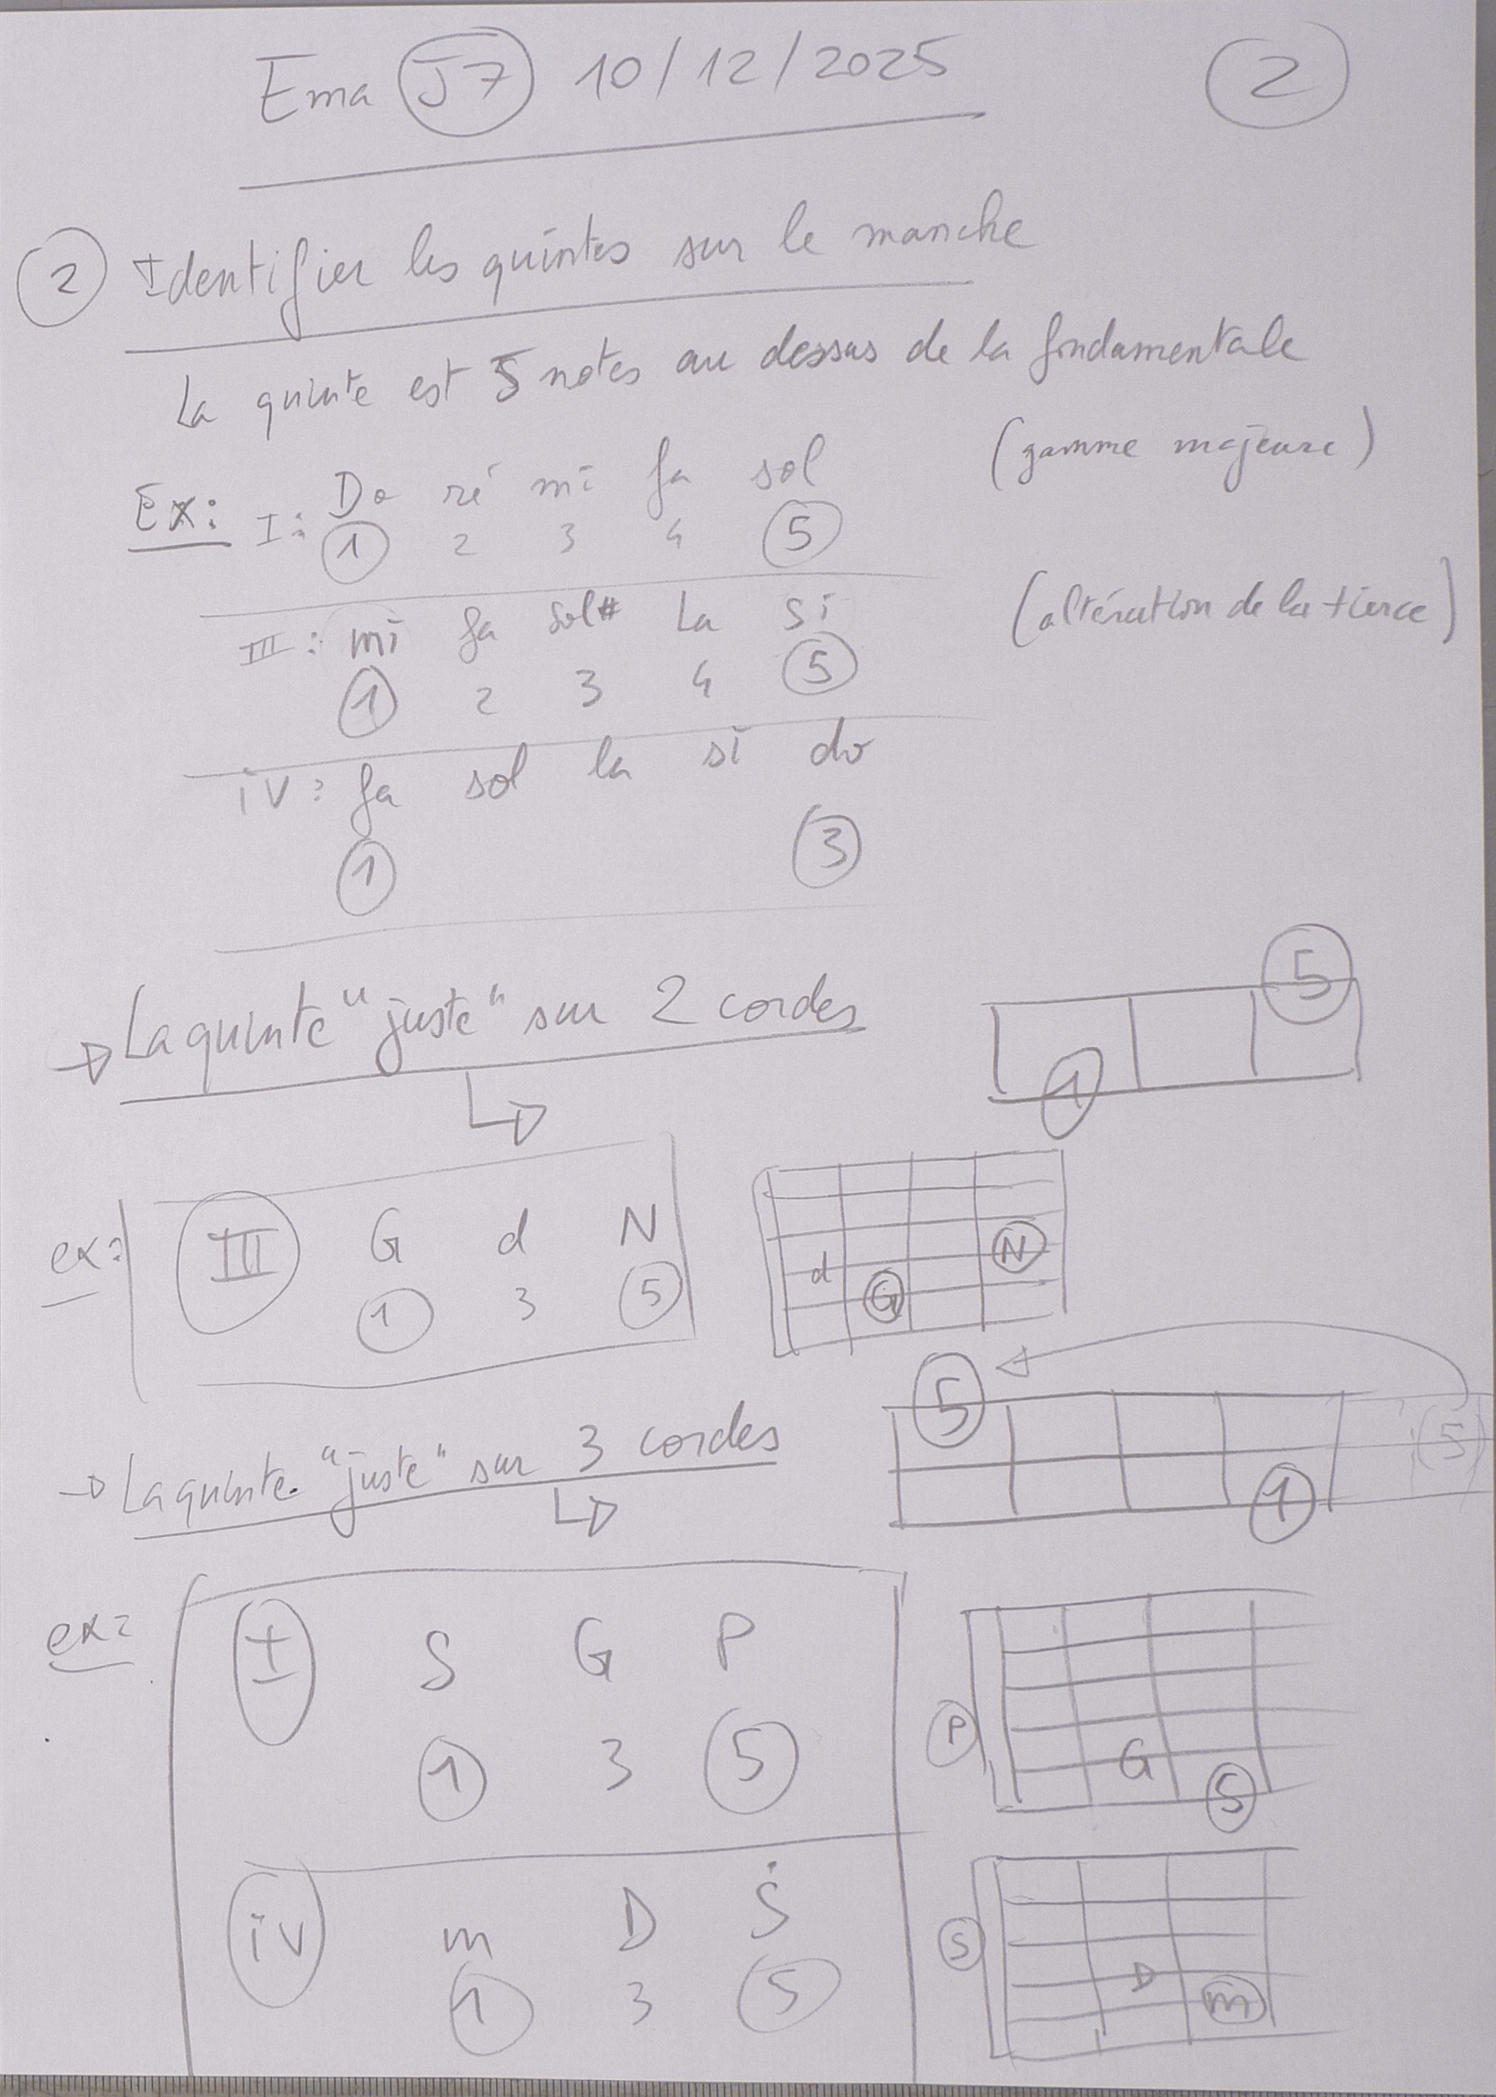 Ema J7 10/12/2025 2
2 Identifier les quintes sur le manche
La quinte est 5 notes au dessus de la fondamentale
Ex: I: Do ré mi fa sol (gamme majeure)
1 2 3 4 5
III: mi fa sol# La si (altération de la tierce)
1 2 3 4 5
iV: fa sol la si do
1 3
La quinte "juste" sur 2 cordes
5
1
ex: III G d N
1 3 5
N
d
G
La quinte "juste" sur 3 cordes
5 (5)
1
ex: I S G P
1 3 5
P
G
S
iV m D Ṡ
1 3 5
S
D
m